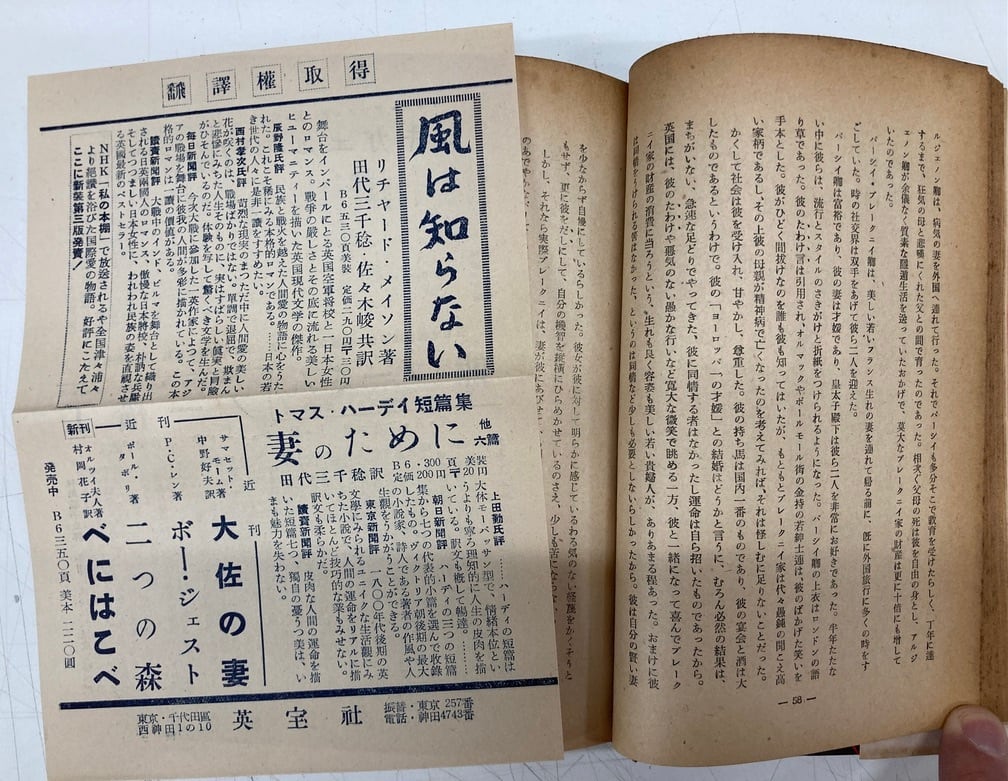 飜譯權取得
風は知らない
リチャード・メイソン著
田代三千稔・佐々木峻共訳
B6五三〇頁美装 定価二九〇円〒二〇円
舞台をインパールにとる英国空軍将校と一日本女性
とのロマンス。戦争の厳しさとその底に流れる美しい
ヒューマニティーを描いた英国現代文学の傑作。
辰野隆氏評 民族と戦火を越えた人間愛の物語に心をうた
れた。これこそ稀にみる本格的ロマンである。……日本の若
き世代の人々に是非一讀をすすめたい。
西村孝次氏評 苛烈な現実のまっただ中に人間愛の美しい
花が咲くのは、戦場ばかりではない。單調で退屈で、欺まん
と悲惨にみちた人生そのものに、実はすばらしい眞実と冒險
がひそんでいるのだ。体験を写して驚くべき文学を生んだ。
毎日新聞評 今次大戰に参加した一英作家によつて、アジ
アの戰場を舞台に彼我の人間が多彩に描かれている。この本
格的ロマンは一讀の價値がある。
讀賣新聞評 大戰中のインド、ビルマを舞台として織り出
される日英兩國人のロマンス、傲慢な日本将校、朴訥な英軍
そしてつつましい日本女性に、われわれ民族の姿を直観させ
る英國最新のベストセラー。
NHK「私の本棚」で放送されるや全国津々浦々
より絶讃を浴びた国際愛の物語。好評にこたえて
ここに新装第三版発売！
トマス・ハーディ短篇集
妻のために 他六篇
田代三千稔訳
B6 300頁 美装
定価200円 〒20円
上田勤氏評 ……ハーディの短篇は
大体モーパッサン型で、情緒本位とい
うよりも寧ろ理知的に人生の皮肉を描
いている。訳文も概して暢達。
朝日新聞評 ハーディの三つの短篇
集から七つの代表的小篇を選んで収錄
したもの。ヴィクトリア朝後期の最大
の小説家、詩人である著者の作風や人
生觀をうかがうことができる。
東京新聞評 一八〇〇年代後期の英
文學にみられるユニイクな生活觀にみ
ちた小説で、人間の運命をリアルに描
いてほとんど技巧的な藥もみせない。
訳文も柔らかだ。
讀賣新聞評 皮肉な人間の運命を描
いた短篇七つ、獨自の憂うつ美は、い
まも魅力を失わない。
近刊
サマセット・モーム著
中野好夫訳
大佐の妻
P・C・レン著
ボー・ジェスト
近
ポール・タボリ著
二つの森
新刊
オルツイ夫人著
村岡花子訳
べにはこべ
発売中 B6三五〇頁 美本 二二〇圓
英宝社
東京・千代田區
西神田1の10
振替・東京 257番
電話・神田4743番
ルジェノン卿は、病気の妻を外国へ連れて行った。それでパーシイも多分そこで教育を受けたらしく、丁年に達
するまで、狂気の母と悲嘆にくれた父との間で育ったのであった。相次ぐ父母の死は彼を自由の身とし、アルジ
ェノン卿が余儀なく質素な隠遁生活を送っていたおかげで、莫大なブレークニイ家の財産は更に十倍にも増して
いたのであった。
パーシイ・ブレークニイ卿は、美しい若いフランス生れの妻を連れて帰る前に、既に外国旅行に多くの時をす
ごしていた。時の社交界は双手をあげて彼ら二人を迎えた。
パーシイ卿は富裕であり、彼の妻は才媛であり、皇太子殿下は彼ら二人を非常にお好きであった。半年たたな
い中に彼らは、流行とスタイルのさきがけと折紙をつけられるようになった。パーシイ卿の上衣はロンドンの語
り草であった。彼のたわけ言は引用され、オルマックやポールモール街の金持の若紳士連は、彼のばかげた笑いを
手本とした。彼がひどく間抜けなのを誰も知ってはいたが、もともとブレークニイ家は代々愚鈍の聞こえ高
い家柄であるし、その上彼の母親が精神病で亡くなったのを考えてみれば、それは怪しむに足りないことだった。
かくして社会は彼を受け入れ、甘やかし、尊重した。彼の持ち馬は国内一番のものであり、彼の宴会と酒は大
したものであるというわけで。彼の「ヨーロッパ一の才媛」との結婚はどうかと言うに、むろん必然の結果は、
まちがいない、急速な足どりでやってきた、彼に同情する者はなかったし運命は自ら招いたものであったから。
英国には、彼のたわけや悪気のない愚かな行いなど寛大な微笑で眺める一方、彼と一緒になって喜んでブレーク
ニイ家の財産の消費に当ろうという、生れも良く容姿も美しい若い貴婦人が、ありあまる程あった。おまけに彼
は同情をうけられる筈はなかった、というのは同情など少しも必要としないらしかったから。彼は自分の賢い妻
— 58 —
を少なからず自慢にしているらしかった。彼女が彼に対して明らかに感じているわる気のない軽蔑をかくそうと
もせず、更に彼をだしにして、自分の機智を縦横にひらめかせているのさえ、少しも苦にならなかった
しかし、それなら実際ブレークニイは、妻が彼にあびせて